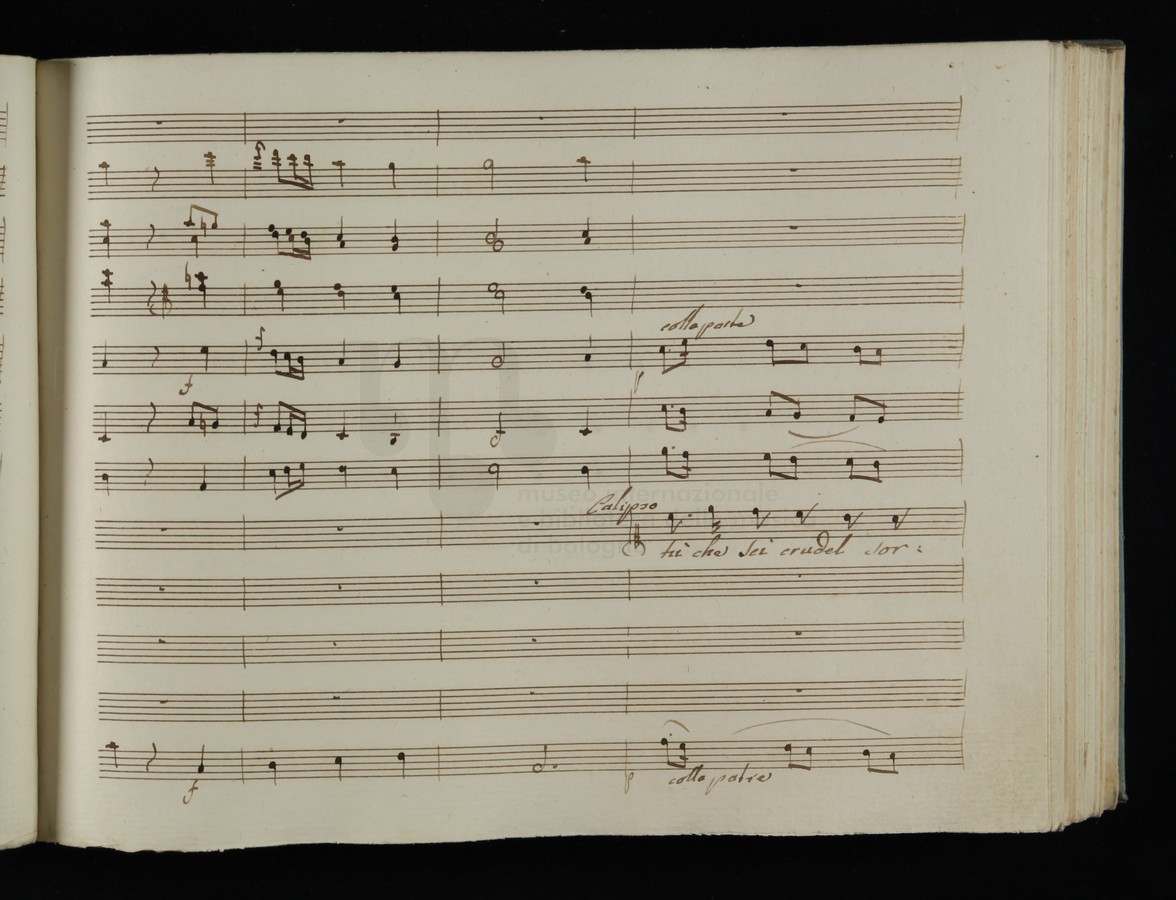 colla parte
f
p
Calipso
museo internazionale
e biblioteca della musica
di bologna
tu che sei crudel sor:
f
p
colla patre